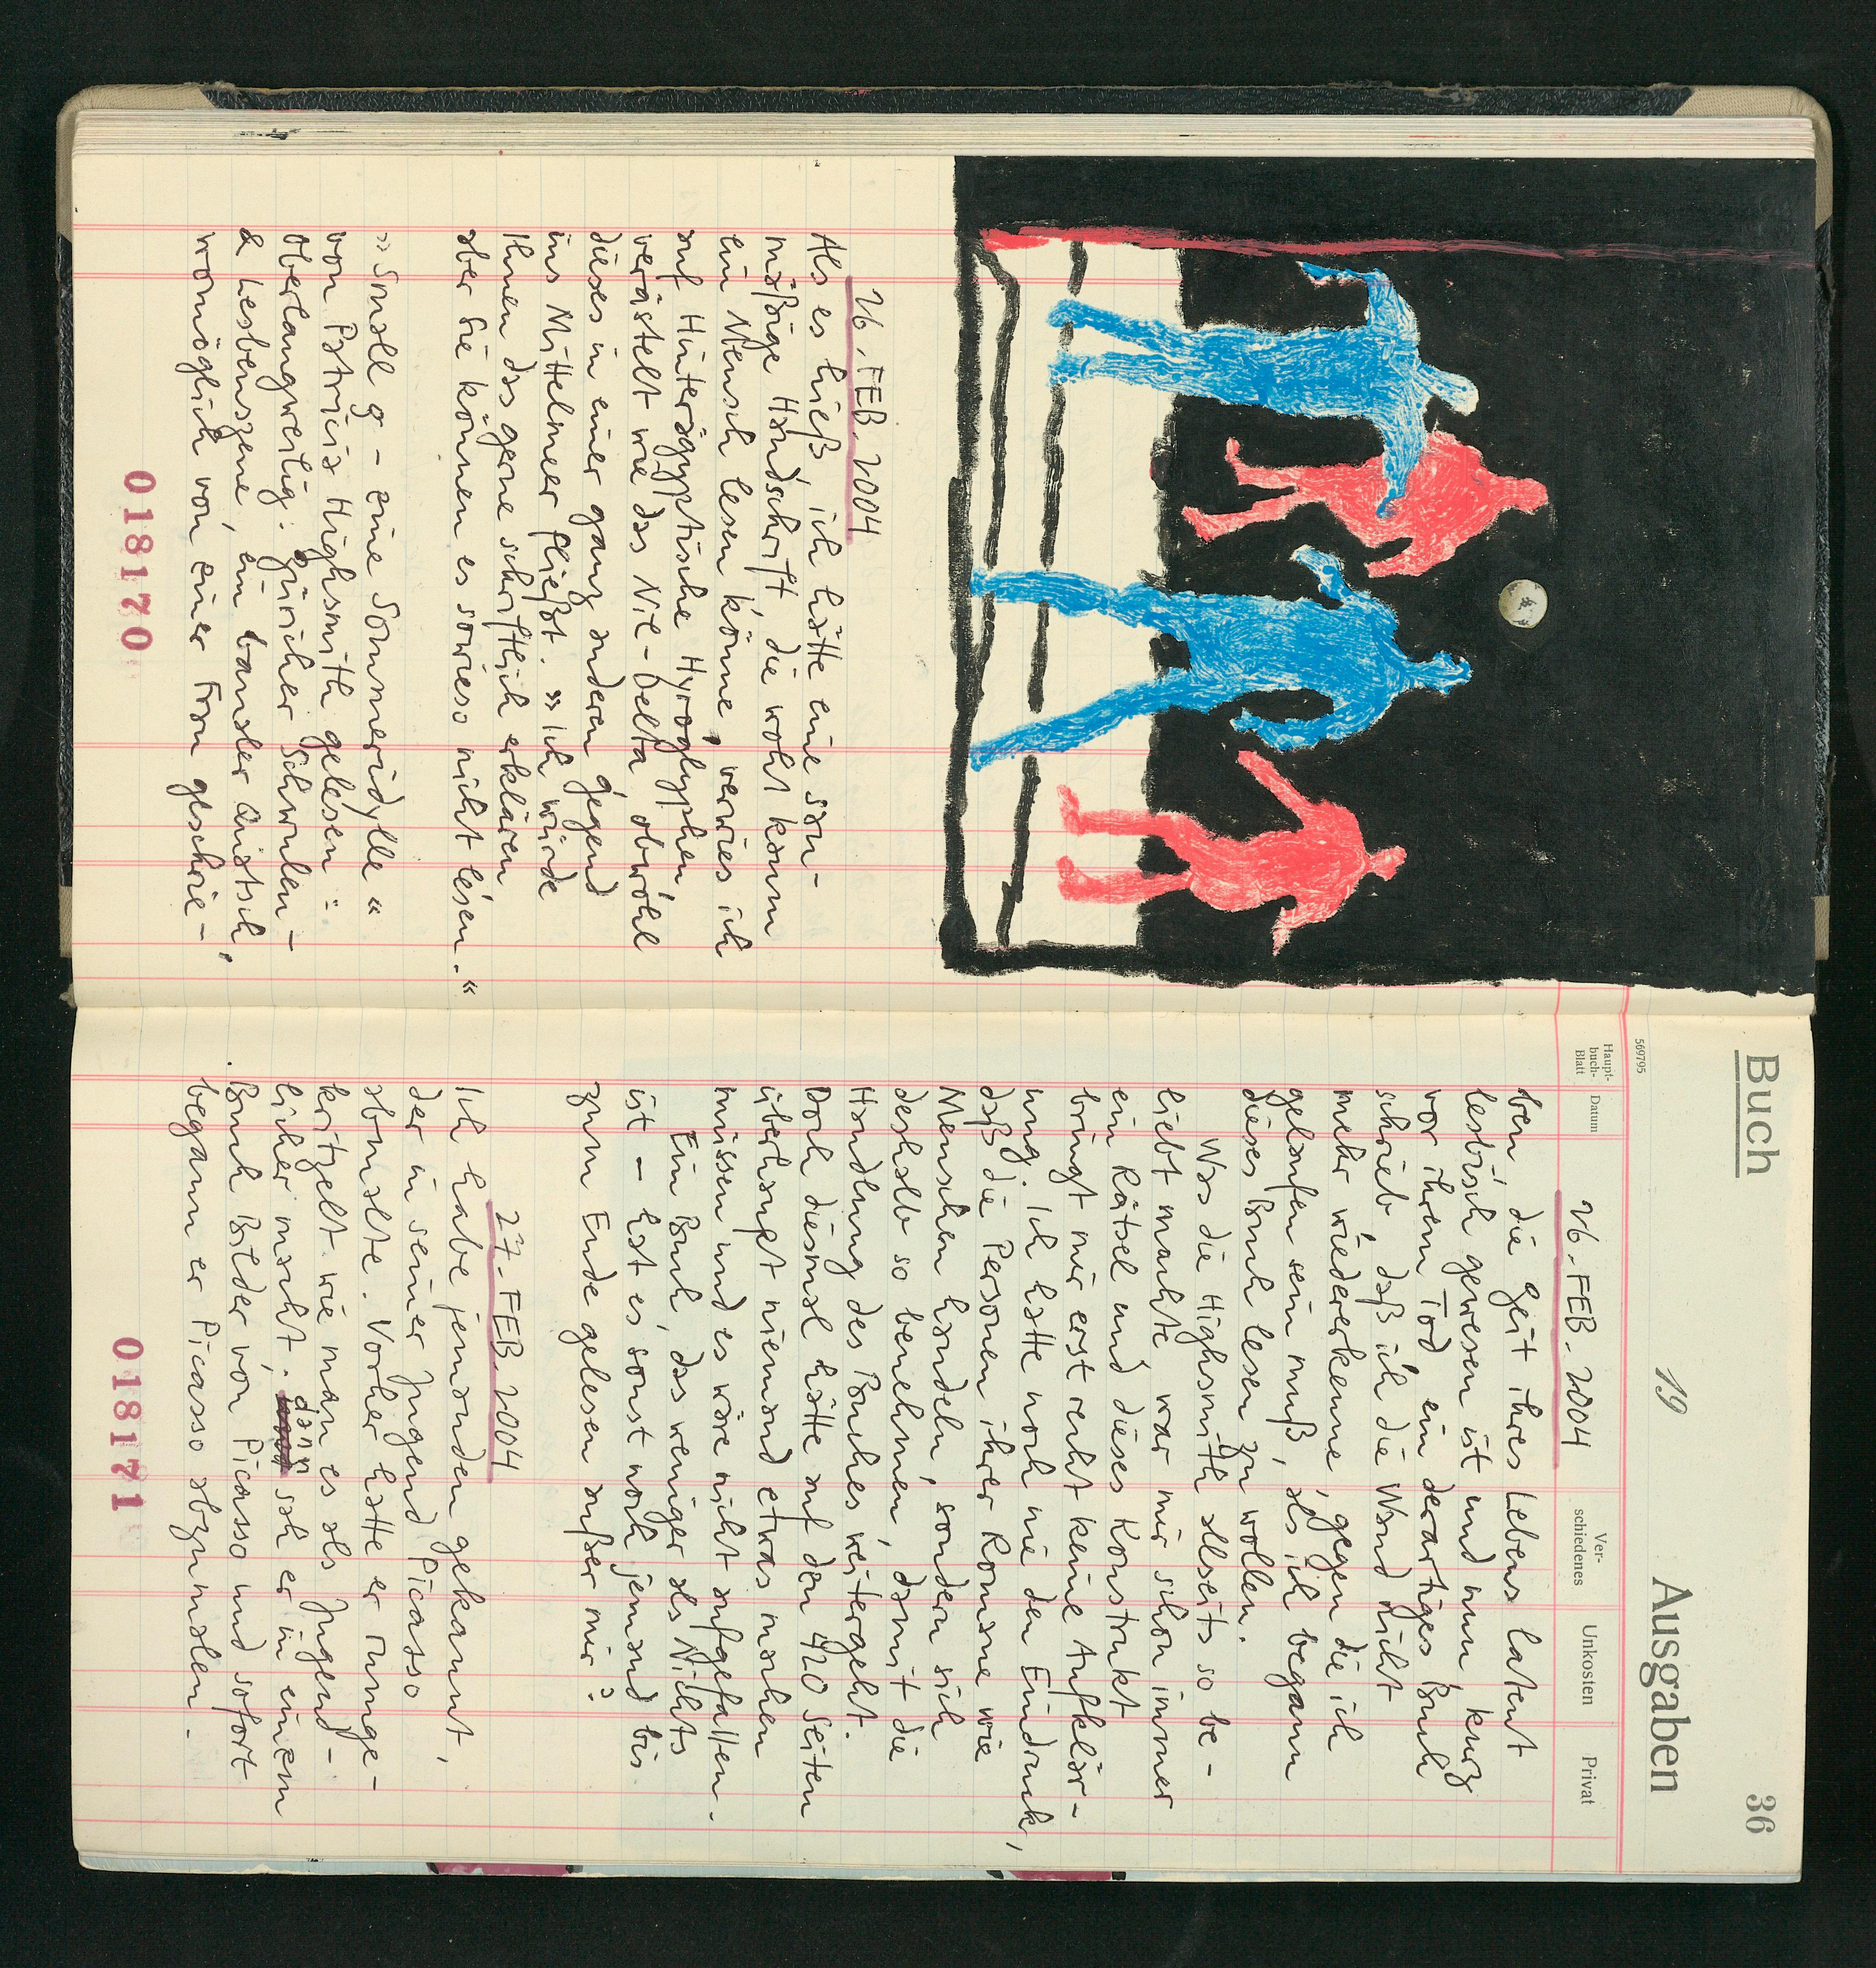 26. FEB. 2004
Als es hieß, ich hätte eine sau-
mäßige Handschrift, die wohl kaum
ein Mensch lesen könne, verwies ich
auf Hinterägyptische Hyroglyphen,
verästelt wie das Nil-Delta, obwohl
dieses in einer ganz anderen Gegend
ins Mittelmeer fließt. »Ich würde
Ihnen das gerne schriftlich erklären
aber Sie können es sowieso nicht lesen.«
»Small g - eine Sommeridylle«
von Patricia Highsmith gelesen:
oberlangweilig: Züricher Schwulen-
& Lesbenszene, ein banaler Quatsch,
womöglich von einer Frau geschrie-
018170
Buch
36
19
Ausgaben
569795
Haupt-
buch-
Blatt
Datum
Ver-
schiedenes
Unkosten
Privat
26. FEB. 2004
ben, die Zeit ihres Lebens latent
lesbisch gewesen ist und nun, kurz
vor ihrem Tod ein derartiges Buch
schrieb, daß ich die Wand nicht
mehr wiedererkenne, gegen die ich
gelaufen sein muß, als ich begann
dieses Buch lesen zu wollen.
Was die Highsmith allseits so be-
liebt machte war mir schon immer
ein Rätsel und dieses Konstrukt
bringt mir erst recht keine Aufklär-
ung. Ich hatte noch nie den Eindruck,
daß die Personen ihrer Romane wie
Menschen handeln, sondern sich
deshalb so benehmen, damit die
Handlung des Buches weitergeht.
Doch diesmal hätte auf den 420 Seiten
überhaupt niemand etwas machen
müssen und es wäre nicht aufgefallen.
Ein Buch, das weniger als Nichts
ist - hat es sonst noch jemand bis
zum Ende gelesen außer mir?
27. FEB. 2004
Ich habe jemanden gekannt,
der in seiner Jugend Picasso
abmalte. Vorher hatte er rumge-
kritzelt wie man es als Jugend-
licher macht; dann sah er in einem
Buch Bilder von Picasso und sofort
begann er Picasso abzumalen.
018171